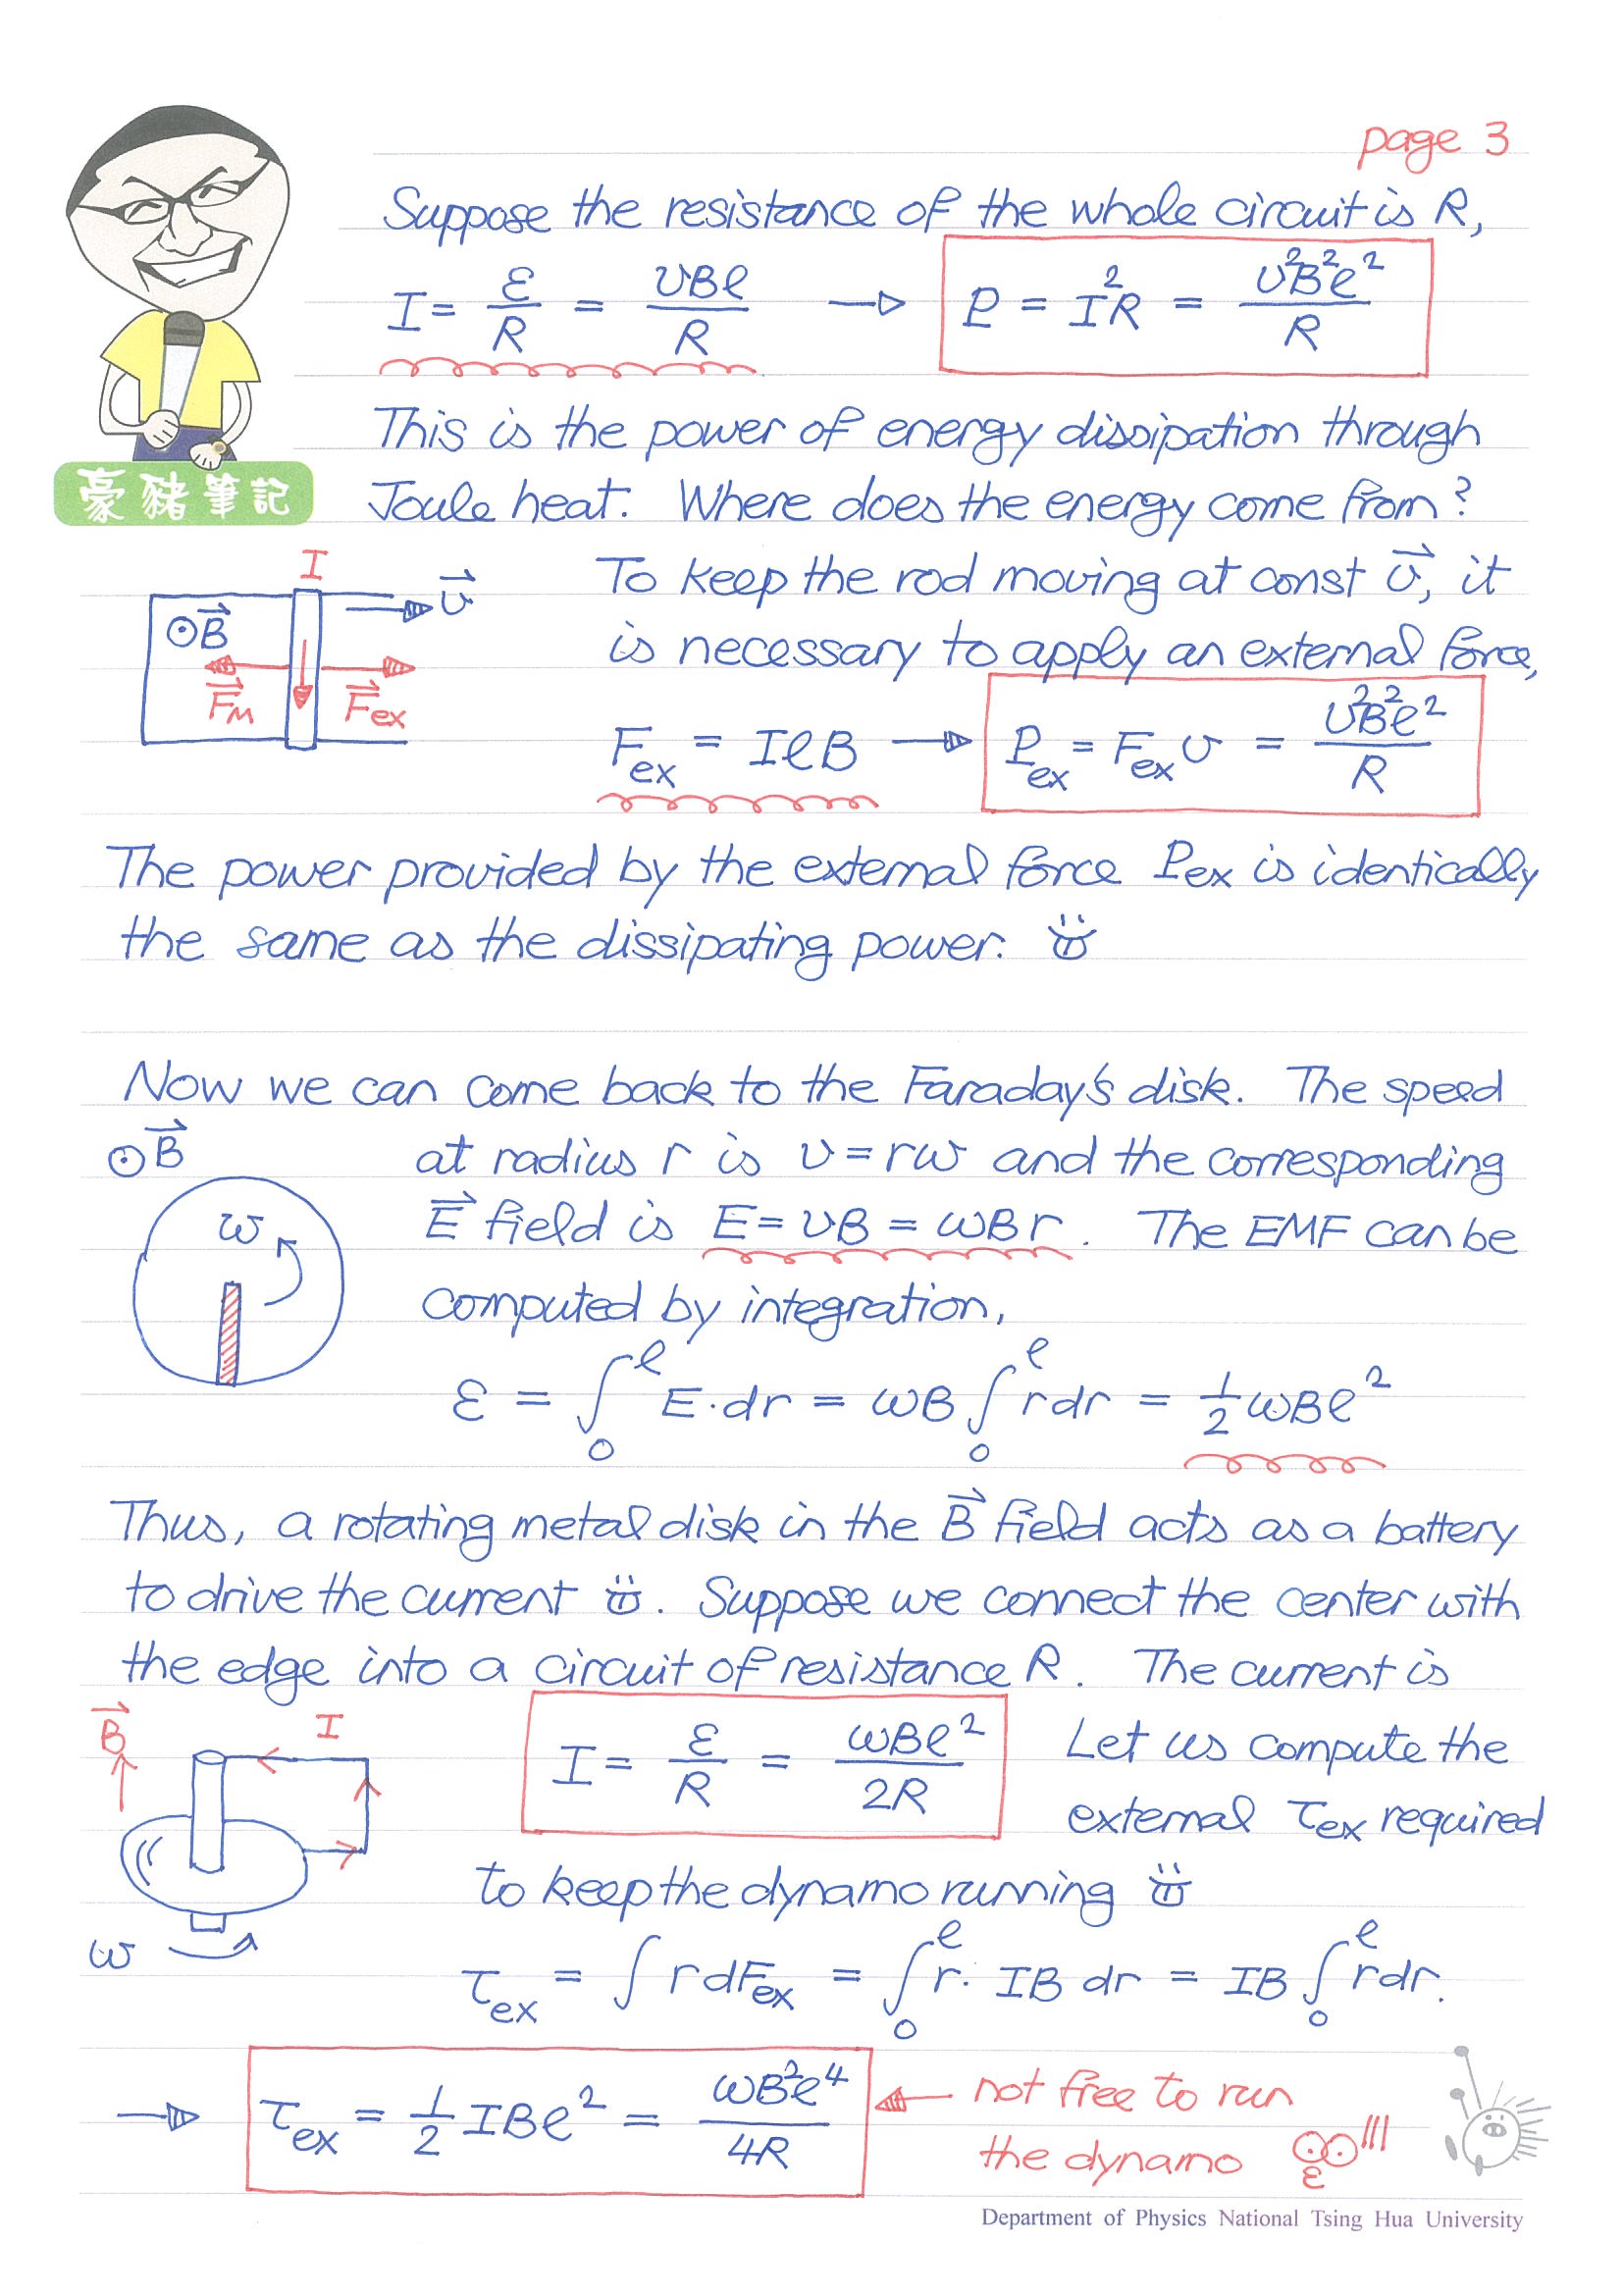 page 3
Suppose the resistance of the whole circuit is R,
I = ε/R = vBℓ/R → P = I²R = v²B²ℓ²/R
This is the power of energy dissipation through
豪豬筆記
Joule heat. Where does the energy come from?
I
⊙B⃗ v⃗
F⃗M F⃗ex
To keep the rod moving at const v⃗, it
is necessary to apply an external force,
Fex = IℓB → Pex = Fex v = v²B²ℓ²/R
The power provided by the external force Pex is identically
the same as the dissipating power.
Now we can come back to the Faraday's disk. The speed
⊙B⃗
ω
at radius r is v = rω and the corresponding
E⃗ field is E = vB = ωBr. The EMF can be
computed by integration,
ε = ∫₀^ℓ E·dr = ωB ∫₀^ℓ rdr = 1/2 ωBℓ²
Thus, a rotating metal disk in the B⃗ field acts as a battery
to drive the current. Suppose we connect the center with
the edge into a circuit of resistance R. The current is
B⃗ I
ω
I = ε/R = ωBℓ²/2R Let us compute the
external τex required
to keep the dynamo running
τex = ∫ r dFex = ∫₀^ℓ r· IB dr = IB ∫₀^ℓ rdr.
→ τex = 1/2 IBℓ² = ωB²ℓ⁴/4R ← not free to run
the dynamo !!!
Department of Physics National Tsing Hua University